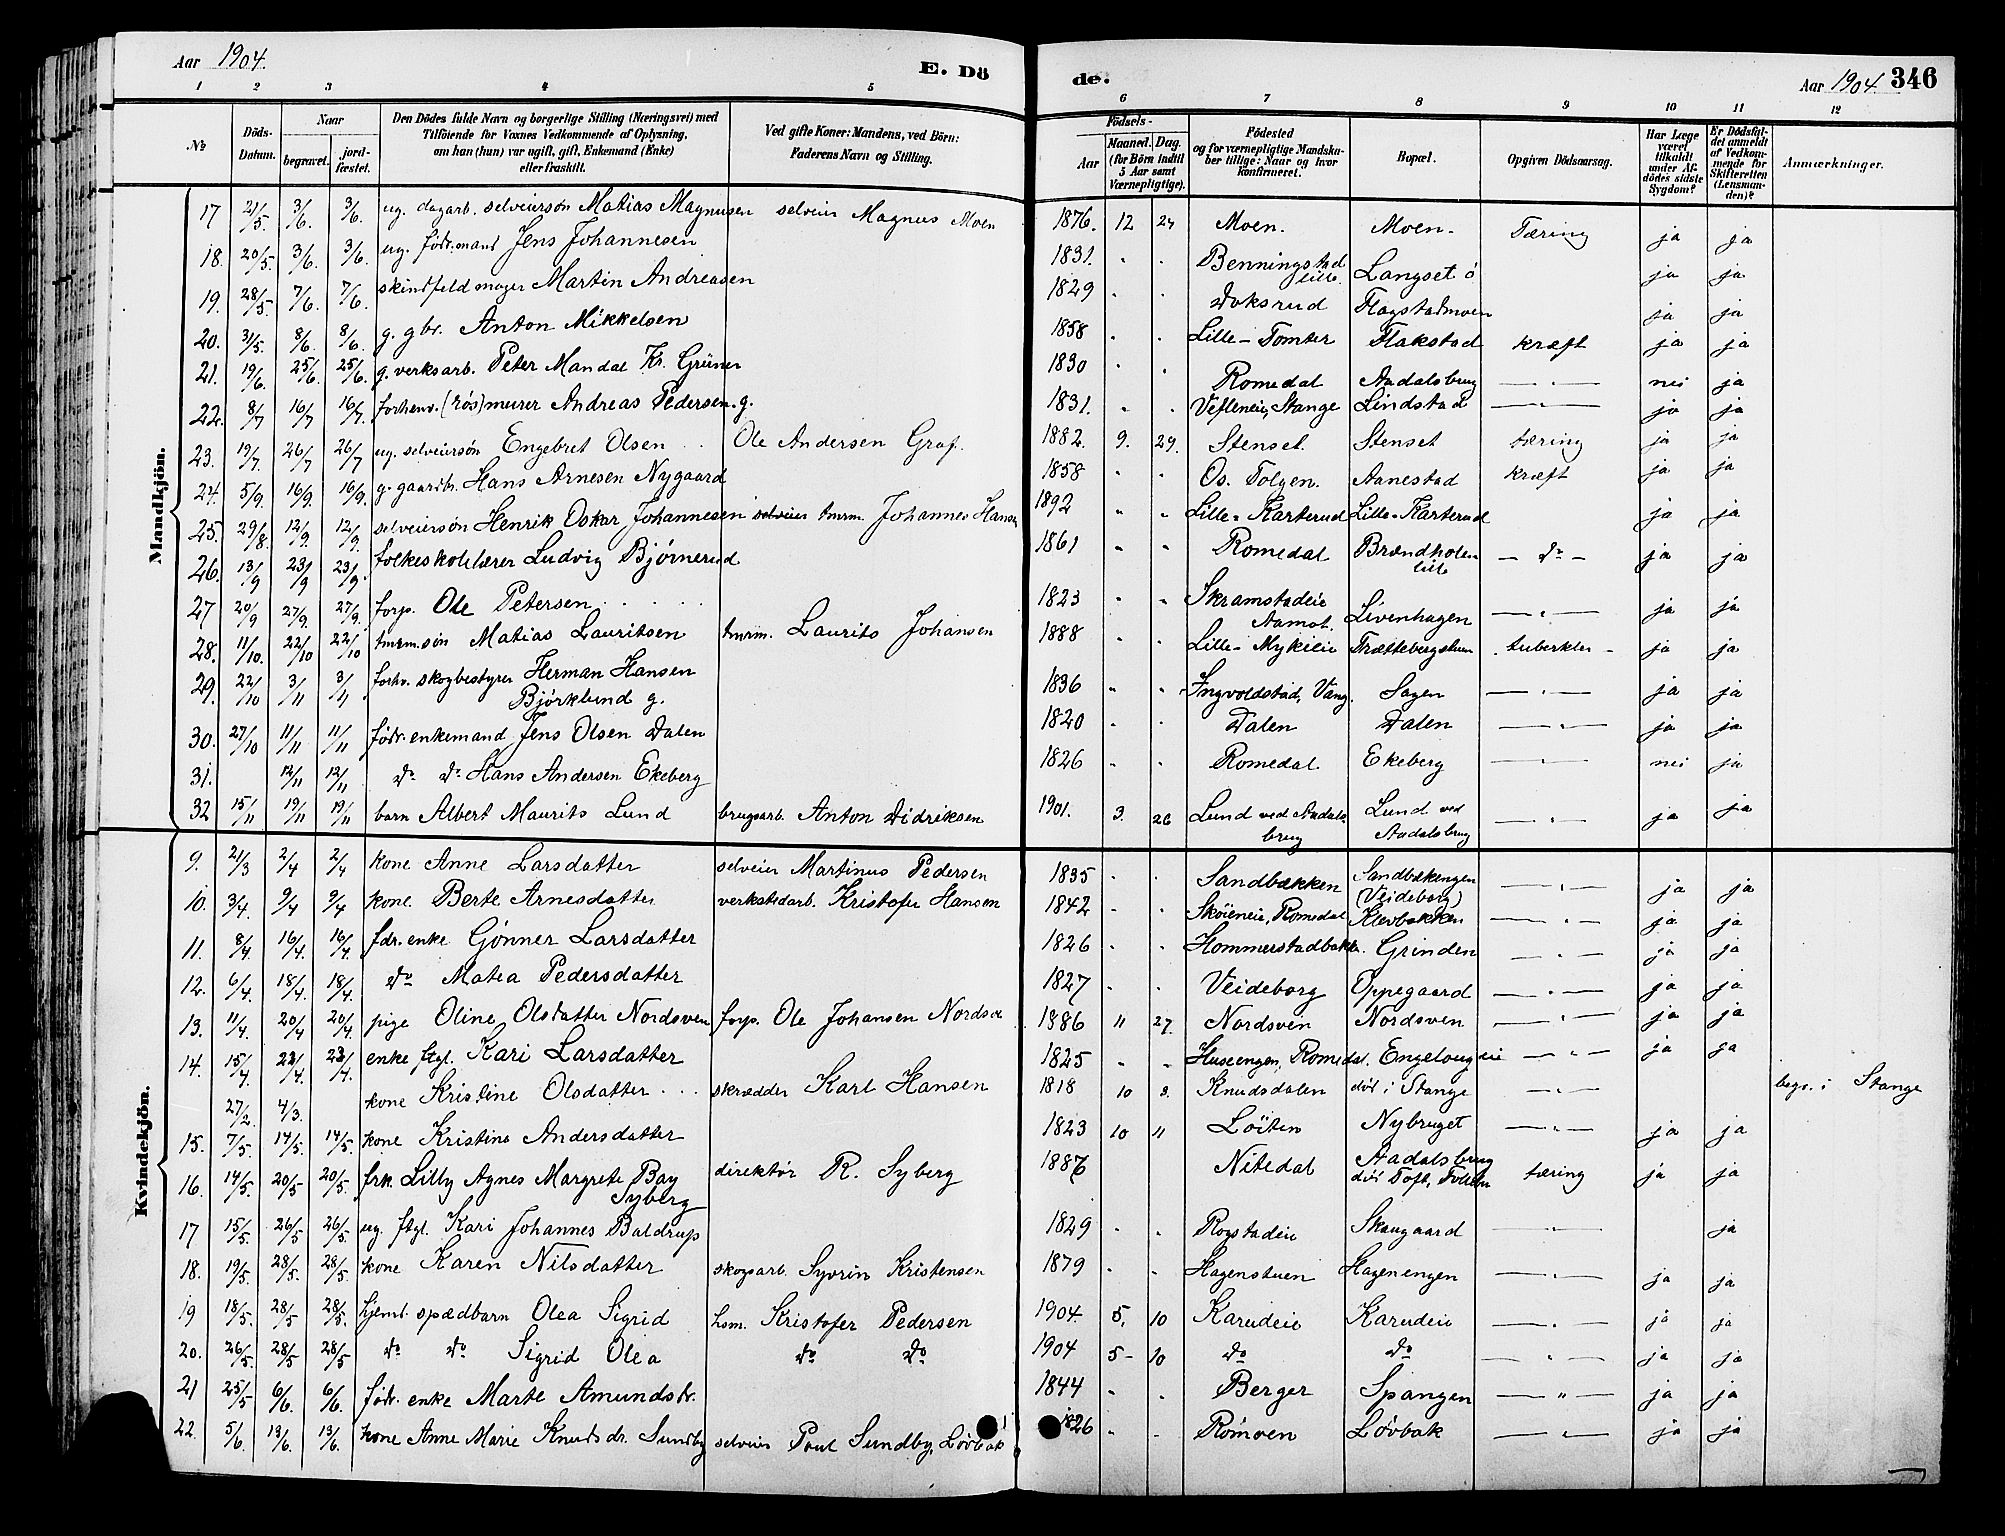 Aar 1904.
E. Dö
de.
Aar 1904
346
1 2 3 4 5 6 7 8 9 10 11 12
№ Döds-Datum. Naar begravet. jord-fæstet. Den Dödes fulde Navn og borgerlige Stilling (Næringsvei) med Tilföiende for Voxnes Vedkommende af Oplysning, om han (hun) var ugift, gift, Enkemand (Enke) eller fraskilt. Ved gifte Koner: Mandens, ved Börn: Faderens Navn og Stilling. Födsels- Aar Maaned. Dag. (for Börn indtil 5 Aar samt Værnepligtige). Födested og for værnepligtige Mandskaber tillige: Naar og hvor konfirmeret. Bopæl. Opgiven Dödsaarsag. Har Læge været tilkaldt under Afdödes sidste Sygdom? Er Dödsfaldet anmeldt af Vedkommende for Skifteretten (Lensmanden)? Anmærkninger.
Mandkjön.
17 21/5 3/6. 3/6. ug. dagarb. selveiersön Matias Magnusen selveier Magnus Moen 1876. 12 24 Moen. Moen. Tæring ja ja
18. 20/5. 3/6. 3/6. ug. födr.mand Jens Johannesen 1831. " " Benningstad lille. Langset ö ja ja
19. 28/5. 7/6. 7/6. skindfeldmager Martin Andreasen 1829 " " Doksrud Flagstadmoen ja ja
20. 31/5. 8/6. 8/6. g. gbr. Anton Mikkelsen 1858 " " Lille-Tomter Flakstad kræft ja ja
21. 19/6. 25/6. 25/6. g. verksarb. Peter Mandal Kr. Grüner 1830 " " Romedal Aadalsbrug — " — nei ja
22. 8/7 16/7 16/7. forhenv. (rös)murer Andreas Pedersen. g. 1831. " " Vefleneie, Stange Lindstad — " — ja ja
23. 19/7. 26/7 26/7 ug. selveiersön Engebret Olsen Ole Andersen Graf. 1882. 9. 29. Stenset. Stenset tæring ja ja
24. 5/9. 16/9. 16/9. g. gaardbr. Hans Arnesen Nygaard 1858 " " Os. Tolgen. Aanestad kræft ja ja
25. 29/8. 12/9. 12/9. selveiersön Henrik Oskar Johannesen selveier tmrm. Johannes Hansen 1892 " " Lille-Karterud Lille-Karterud ja ja
26. 13/9 23/9 23/9 folkeskolelærer Ludvig Bjørnerud 1861 " " Romedal Brændholen lille — do — ja ja
27 20/9 27/9. 27/9. forp. Ole Petersen 1823 " " Skramstadeie Aamot. Livenhagen — " — ja ja
28. 11/10. 22/10 22/10 tmrm.sön Matias Lauritsen tmrm. Laurits Johansen 1888 " " Lille-Mykileie Trættebergstuen tuberkler ja ja
29. 22/10 3/11 3/11 forhv. skogbestyrer Herman Hansen Björklund g. 1836 " " Ingvoldstad, Vang. Sagen — " — ja ja
30. 27/10 11/11 11/11 födr. enkemand Jens Olsen Dalen 1820 " " Dalen Dalen — " — ja ja
31. 12/11 12/11 do do Hans Andersen Ekeberg 1826 Romedal Ekeberg — " — nei ja
32 15/11 19/11 19/11 barn Albert Maurits Lund brugsarb. Anton Didriksen 1901. 3. 26 Lund ved Aadalsbrug Lund ved Aadalsbrug — " — ja ja
Kvindekjön.
9. 21/3 2/4 2/4 kone Anne Larsdatter selveier Martinus Pedersen 1835 " " Sandbækken Sandbækengen (Veideborg) — " — ja ja
10. 3/4. 9/4 9/4 kone Berte Arnesdatter verkstedarb. Kristofer Hansen 1842 " " Sköieneie, Romedal Klevbakken — " — ja ja
11. 8/4. 16/4. 16/4. fdr. enke Gönner Larsdatter 1826 " " Hommerstadbakk. Grinden — " — ja ja
12. 6/4. 18/4. 18/4. do Matea Pedersdatter 1827 " " Veideborg Oppegaard — " — ja ja
13. 11/4. 20/4 20/4 pige Oline Olsdatter Nordsven forp. Ole Johansen Nordsv. 1886 11 27. Nordsven Nordsven — " — ja ja
14. 15/4. 23/4. 23/4. enke ftgl. Kari Larsdatter 1825 " " Huseengen, Romedal. Engelaugeie — " — ja ja
27/2. 4/3. kone Kristine Olsdatter skrædder Karl Hansen 1818 10 8. Knudsdalen död i Stange — " — begr. i Stange
15. 7/5. 14/5. 14/5. kone Kristine Andersdatter 1823 10 11 Löiten Nybruget — " — ja ja
16. 14/5. 20/5 20/5. frk. Lilly Agnes Margrete Bay Syberg direktör R. Syberg 1886 Nitedal Aadalsbrug död Toft, tæring ja ja
17 15/5. 26/5 26/5. ug. ftgl. Kari Johannes Baldrup 1829 " " Rogstadeie Skaugaard — " — ja
18. 19/5. 28/5. 28/5. kone Karen Nilsdatter skogsarb. Syvrin Kristensen 1879 " " Hagenstuen Hagenengen — " — ja ja
19 18/5. 28/5. 28/5. hjemd. spædbarn Olea Sigrid hsm. Kristofer Pedersen 1904. 5. 10 Karudeie Karudeie — " — ja ja
20. 26/5. 28/5 28/5 do do Sigrid Olea do do 1904 5- 10 do do — " — ja ja
21 25/5 6/6. 6/6. födr. enke Marte Amundsdr. 1844 " " Berger Spangen — " — ja ja
22. 5/6. 13/6. 13/6. kone Anne Marie Knudsdr. Sundby selveier Poul Sundby, Lövbak 1826 " " Römoen Lövbak — " — ja ja